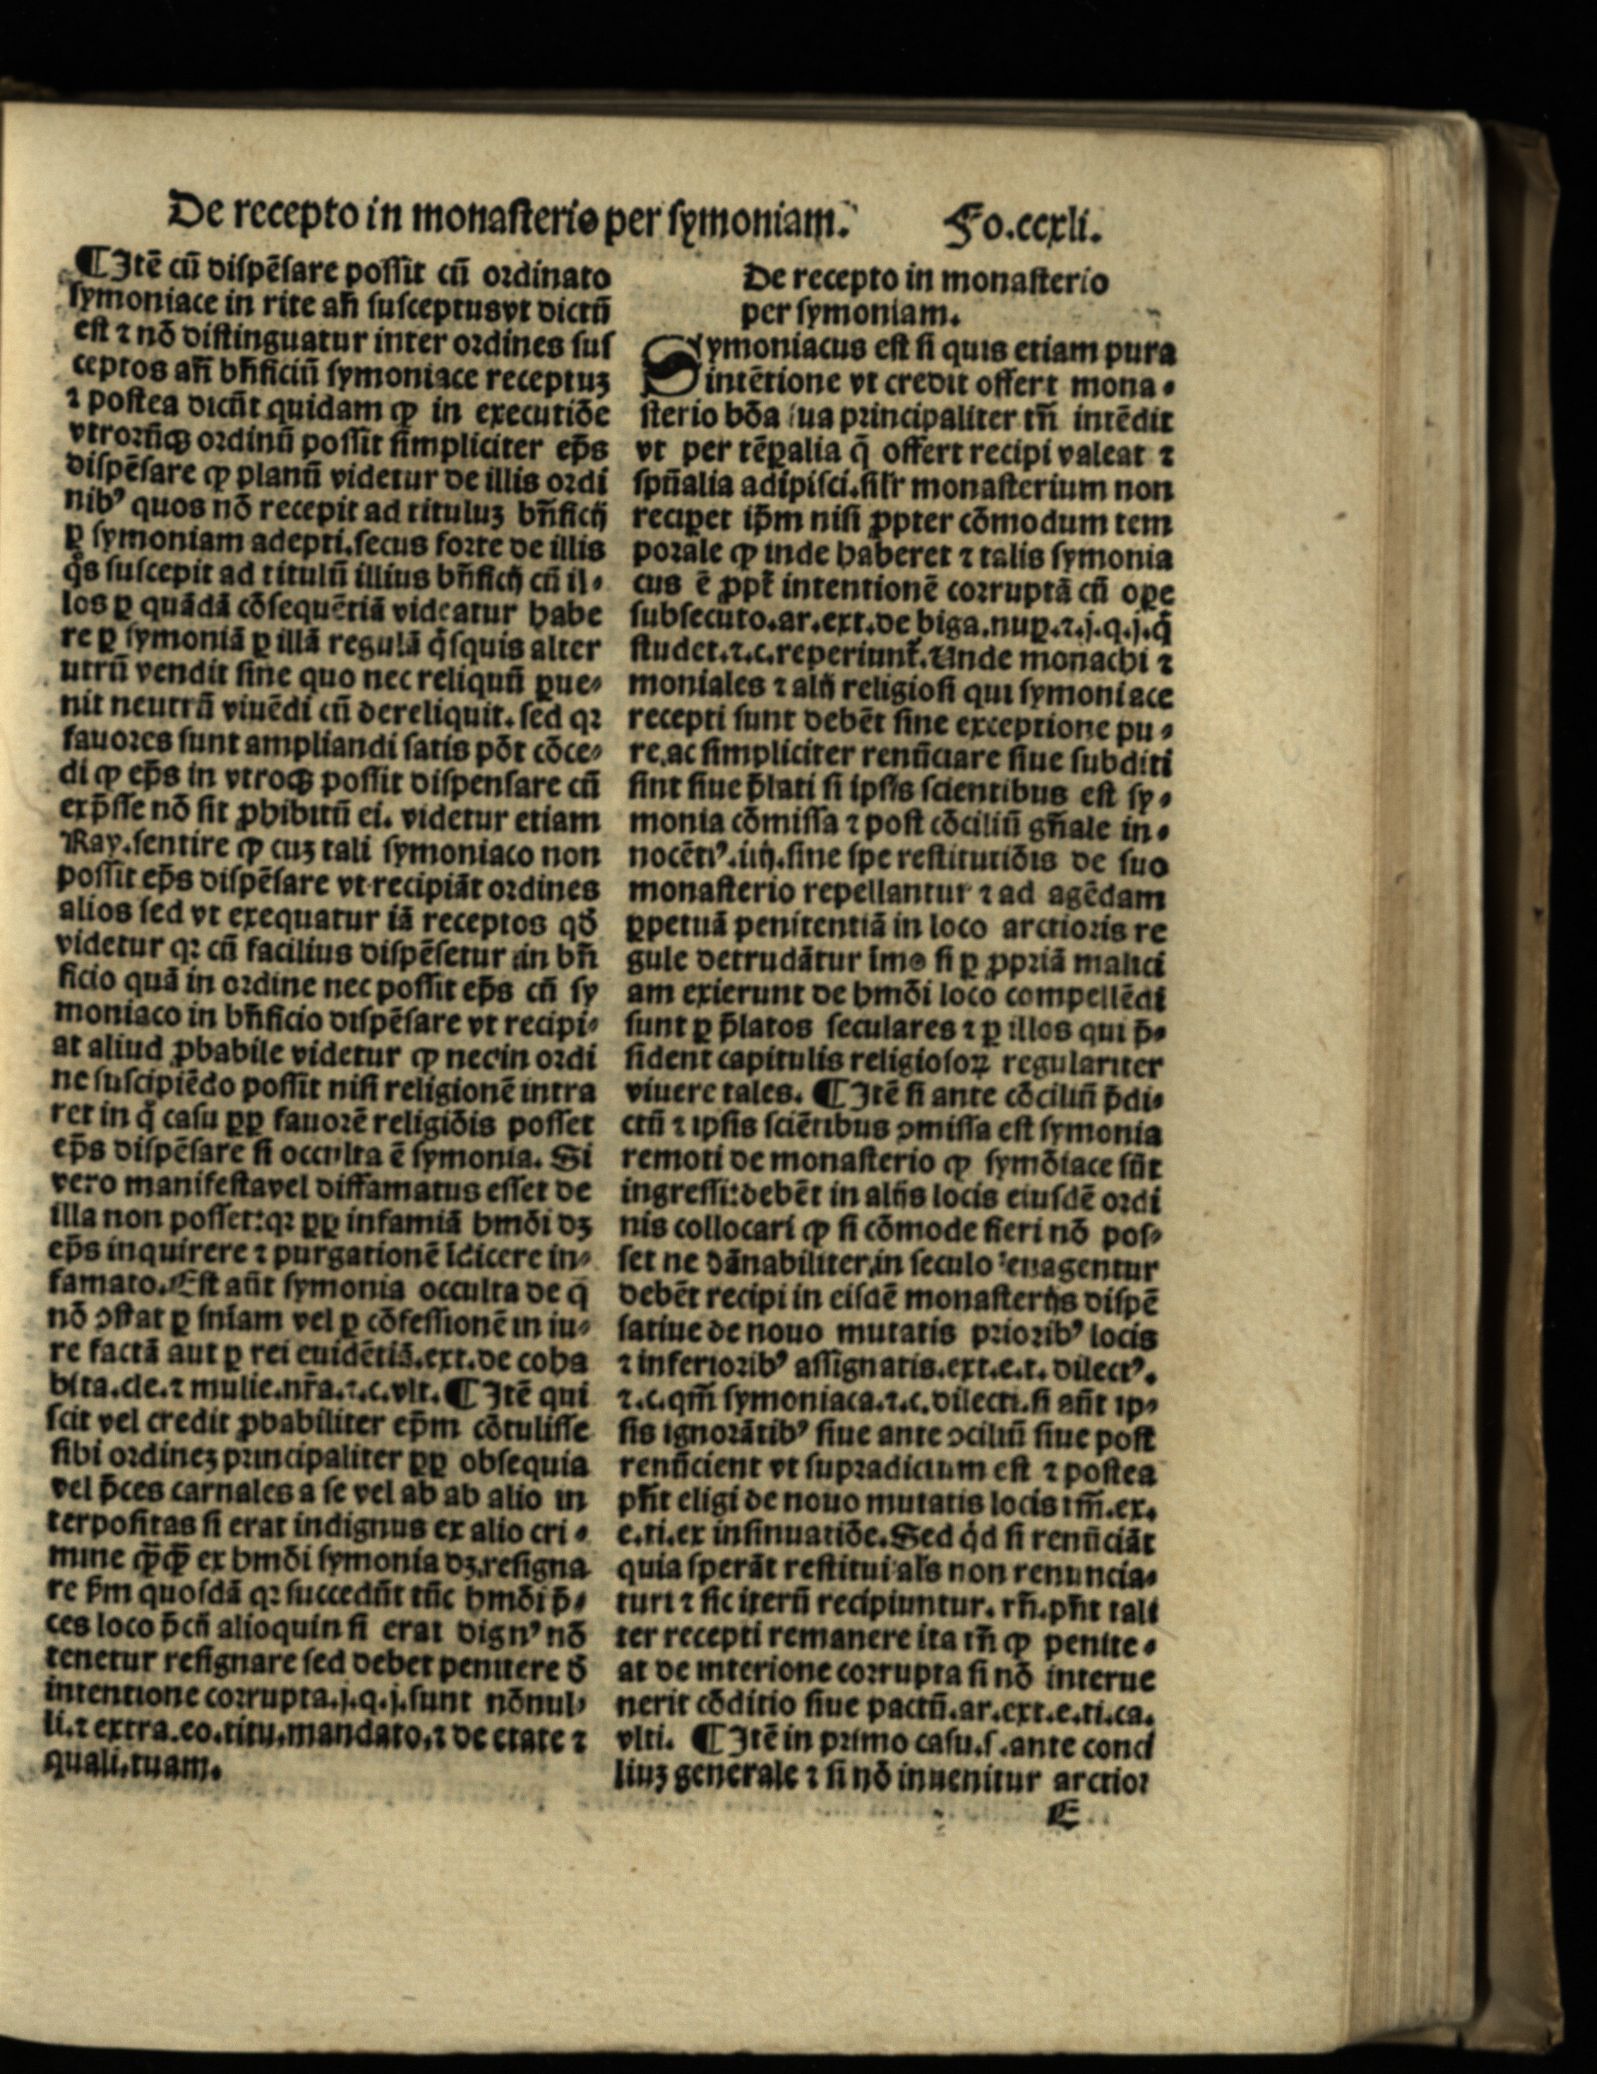 De recepto in monasterio per symoniam. Fo.ccxli.
¶Itē cū dispēsare possit cū ordinato
symoniace in rite añ susceptusvt dictū
est ⁊ nō distinguatur inter ordines sus
ceptos añ bñficiū symoniace receptuȝ
⁊ postea dicūt quidam ꝙ in executiōe
vtrorūqꝫ ordinū possit simpliciter ep̄s
dispēsare ꝙ planū videtur de illis ordi
nibꝰ quos nō recepit ad tituluȝ bñficij
ꝑ symoniam adepti.secus forte de illis
q̊s suscepit ad titulū illius bñficij cū il⸗
los ꝑ quādā cōsequētiā videatur habe
re ꝑ symoniā ꝑ illā regulā q̇squis alter
utrū vendit sine quo nec reliquū ꝑue⸗
nit neutrū viuēdi cū dereliquit. sed qꝛ
fauores sunt ampliandi satis pōt cōce⸗
di ꝙ ep̄s in vtroqꝫ possit dispensare cū
exp̄sse nō sit ꝓhibitū ei. videtur etiam
Ray.sentire ꝙ cuȝ tali symoniaco non
possit ep̄s dispēsare vt recipiāt ordines
alios sed vt exequatur iā receptos qđ
videtur qꝛ cū facilius dispēsetur in bñ
ficio quā in ordine nec possit ep̄s cū sy
moniaco in bñficio dispēsare vt recipi⸗
at aliud ꝓbabile videtur ꝙ nec in ordi
ne suscipiēdo possit nisi religionē intra
ret in q̊ casu ꝑꝑ fauorē religiōis posset
ep̄s dispēsare si occulta ē symonia. Si
vero manifestavel diffamatus esset de
illa non posset:qꝛ ꝑꝑ infamiā hmōi dȝ
ep̄s inquirere ⁊ purgationē īdicere in⸗
famato.Est aūt symonia occulta de q̄
nō ꝯstat ꝑ sñiam vel ꝑ cōfessionē in iu⸗
re factā aut ꝑ rei euidētiā.ext.de coha
bita.cle.⁊ mulie.nr̄a.⁊.c.vlt. ¶Itē qui
scit vel credit ꝓbabiliter ep̄m cōtulisse
sibi ordineȝ principaliter ꝑꝑ obsequia
vel p̄ces carnales a se vel ab ab alio in
terpositas si erat indignus ex alio cri⸗
mine ꝙ̄ꝙ̄ ex hmōi symonia dȝ.resigna
re p̄m quosdā qꝛ succedūt tūc hmōi p̄⸗
ces loco p̄cij alioquin si erat dignꝰ nō
tenetur resignare sed debet penitere đ
intentione corrupta.j.q.j.sunt nōnul⸗
li.⁊ extra.eo.titu.mandato.⁊ de etate ⁊
quali.tuam.
De recepto in monasterio
per symoniam.
Symoniacus est si quis etiam pura
intētione vt credit offert mona⸗
sterio bōa sua principaliter tñ intēdit
vt per tēꝑalia q̄ offert recipi valeat ⁊
spūalia adipisci.sil̄r monasterium non
reciꝑet ip̄m nisi ꝓpter cōmodum tem
porale ꝙ inde haberet ⁊ talis symonia
cus ē ꝓpt̄ intentionē corruptā cū oꝑe
subsecuto.ar.ext.de biga.nuꝑ.⁊.j.q.j.q̇
studet.⁊.c.reperiunt̄.Unde monachi ⁊
moniales ⁊ alij religiosi qui symoniace
recepti sunt debēt sine exceptione pu⸗
re.ac simpliciter renūciare siue subditi
sint siue p̄lati si ipsis scientibus est sy⸗
monia cōmissa ⁊ post cōciliū gñale in⸗
nocētiꝰ.iiij.sine spe restitutiōis de suo
monasterio repellantur ⁊ ad agēdam
ꝑpetuā penitentiā in loco arctioris re
gule detrudātur īmo si ꝑ ꝓpriā malici
am exierunt de hmōi loco compellēdi
sunt ꝑ p̄latos seculares ⁊ ꝑ illos qui p̄⸗
sident capitulis religiosoꝝ regulariter
viuere tales. ¶Itē si ante cōciliū p̄di⸗
ctū ⁊ ipsis sciētibus ꝯmissa est symonia
remoti de monasterio ꝙ symōiace sūt
ingressi:debēt in alijs locis eiusdē ordi
nis collocari ꝙ si cōmode fieri nō pos⸗
set ne dānabiliter in seculo euagentur
debēt recipi in eisdē monasterijs dispē
satiue de nouo mutatis prioribꝰ locis
⁊ inferioribꝰ assignatis.ext.e.t. dilectꝰ.
⁊.c.qm̄ symoniaca.⁊.c.dilecti.si aūt ip⸗
sis ignorātibꝰ siue ante ꝯciliū siue post
renūcient vt supradictum est ⁊ postea
pñt eligi de nouo mutatis locis tm̄.ex.
e.ti.ex insinuatiōe.Sed q̇d si renūciāt
quia sperāt restitui al̄s non renuncia⸗
turi ⁊ sic iterū recipiuntur. rñ.pñt tali
ter recepti remanere ita tñ ꝙ penite⸗
at de interione corrupta si nō interue
nerit cōditio siue pactū.ar.ext.e.ti.ca.
vlti. ¶Itē in primo casu.s.ante conci
liuȝ generale ⁊ si nō inuenitur arctior
E